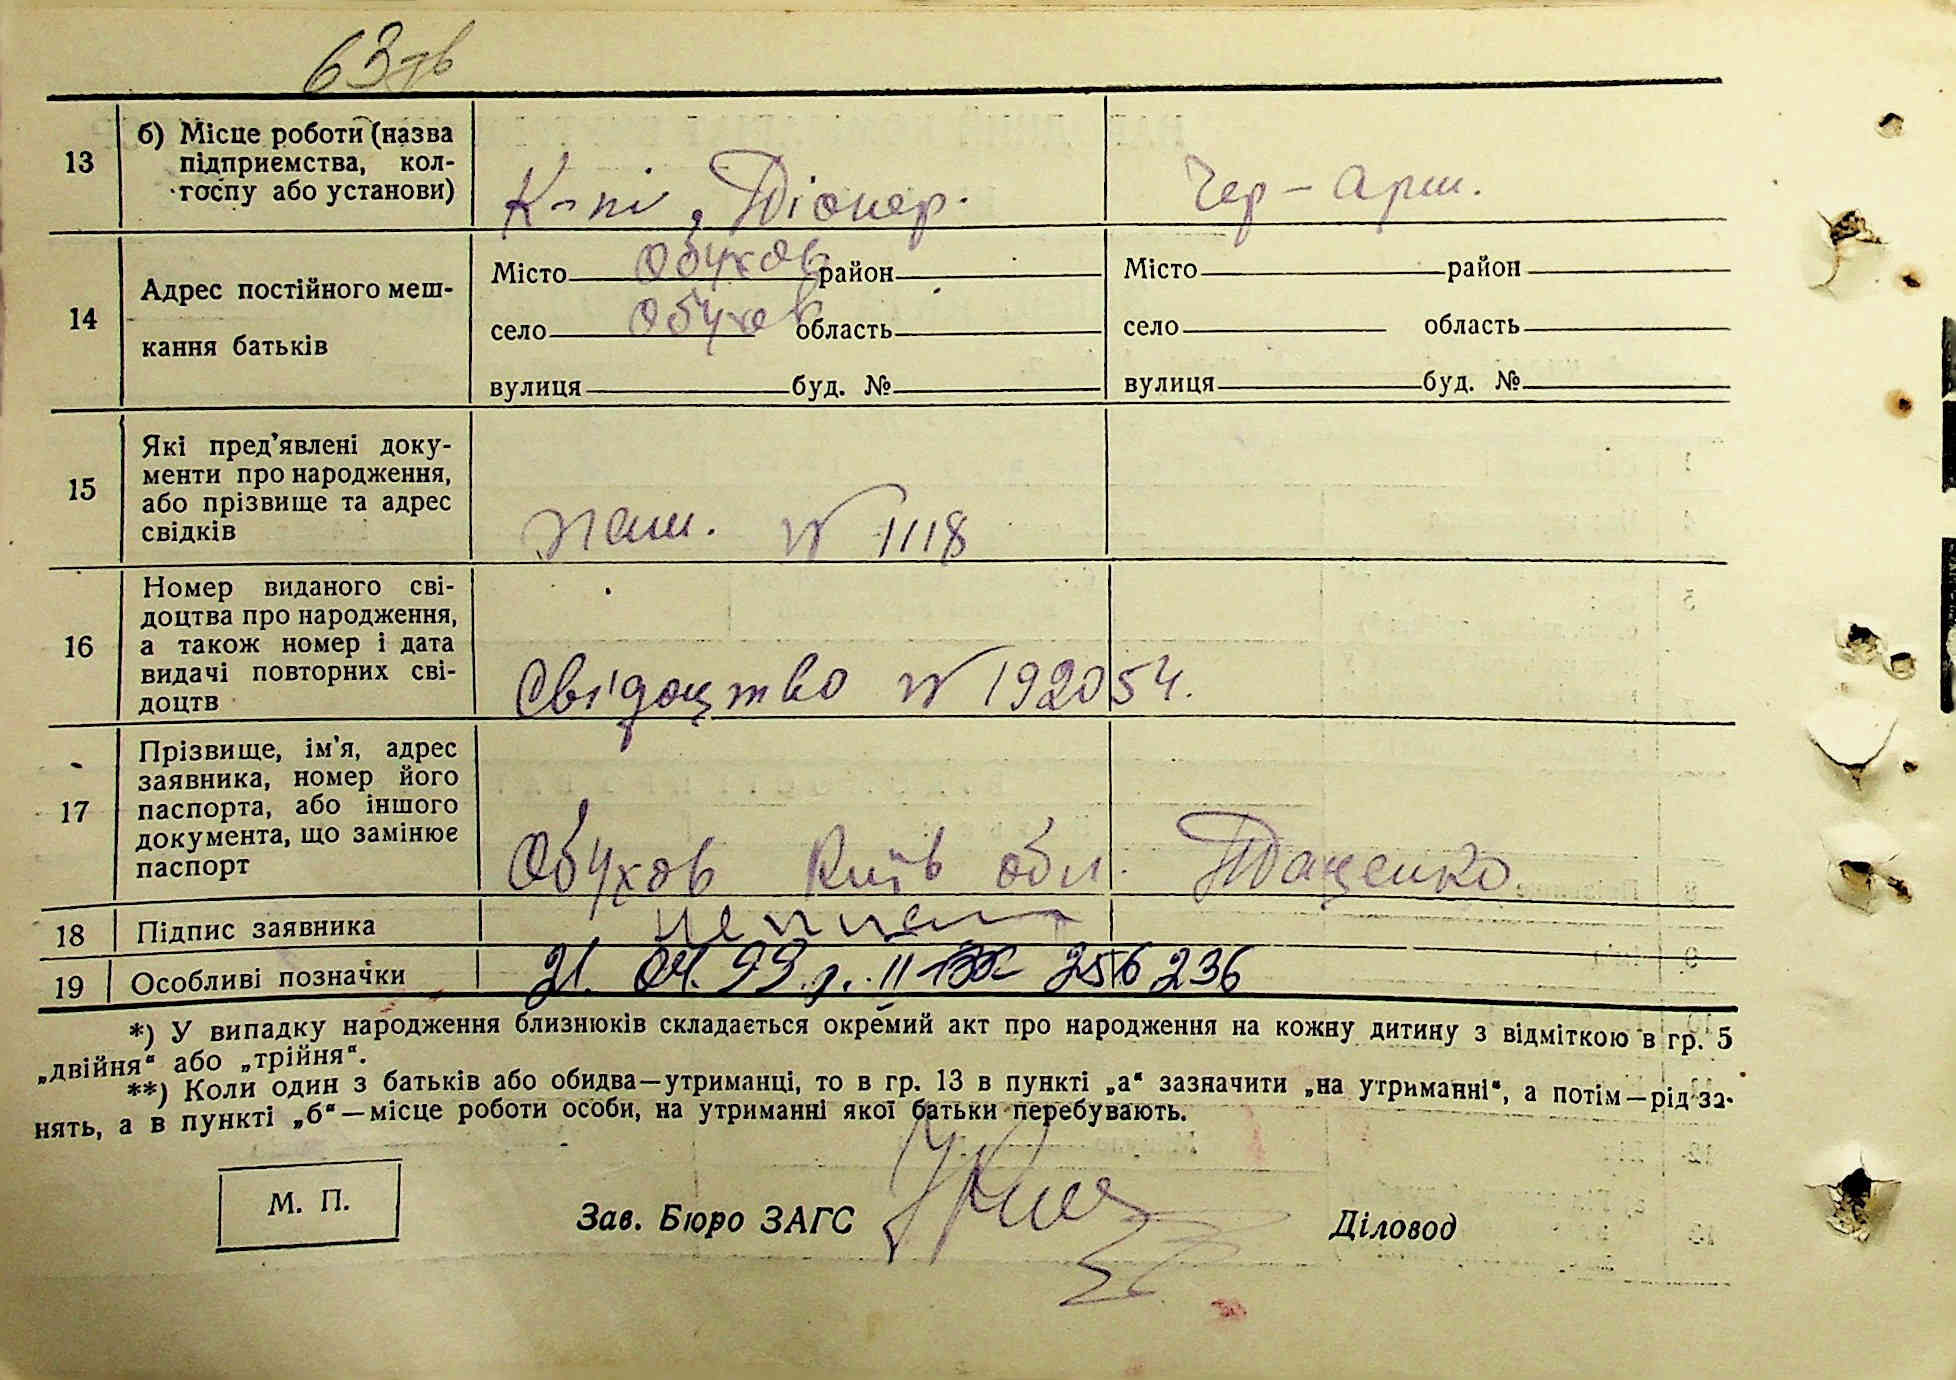 63 зв
13
б) Місце роботи (назва
підприємства, кол-
госпу або установи)
К-пі „Піонер.
Чер-арм.
14
Адрес постійного меш-
кання батьків
Місто Обухов район
село Обухов область
вулиця буд. №
Місто район
село область
вулиця буд. №
15
Які пред'явлені доку-
менти про народження,
або прізвище та адрес
свідків
паш. № 1118
16
Номер виданого сві-
доцтва про народження,
а також номер і дата
видачі повторних сві-
доцтв
Свідоцтво № 192054.
17
Прізвище, ім'я, адрес
заявника, номер його
паспорта, або іншого
документа, що замінює
паспорт
Обухов Київ обл. Паценко
18
Підпис заявника
19
Особливі позначки
21. 04. 93 р. II-ВЖ 256236
*) У випадку народження близнюків складається окремий акт про народження на кожну дитину з відміткою в гр. 5
„двійня“ або „трійня“.
**) Коли один з батьків або обидва—утриманці, то в гр. 13 в пункті „а“ зазначити „на утриманні“, а потім—рід за-
нять, а в пункті „б“—місце роботи особи, на утриманні якої батьки перебувають.
М. П.
Зав. Бюро ЗАГС
Діловод